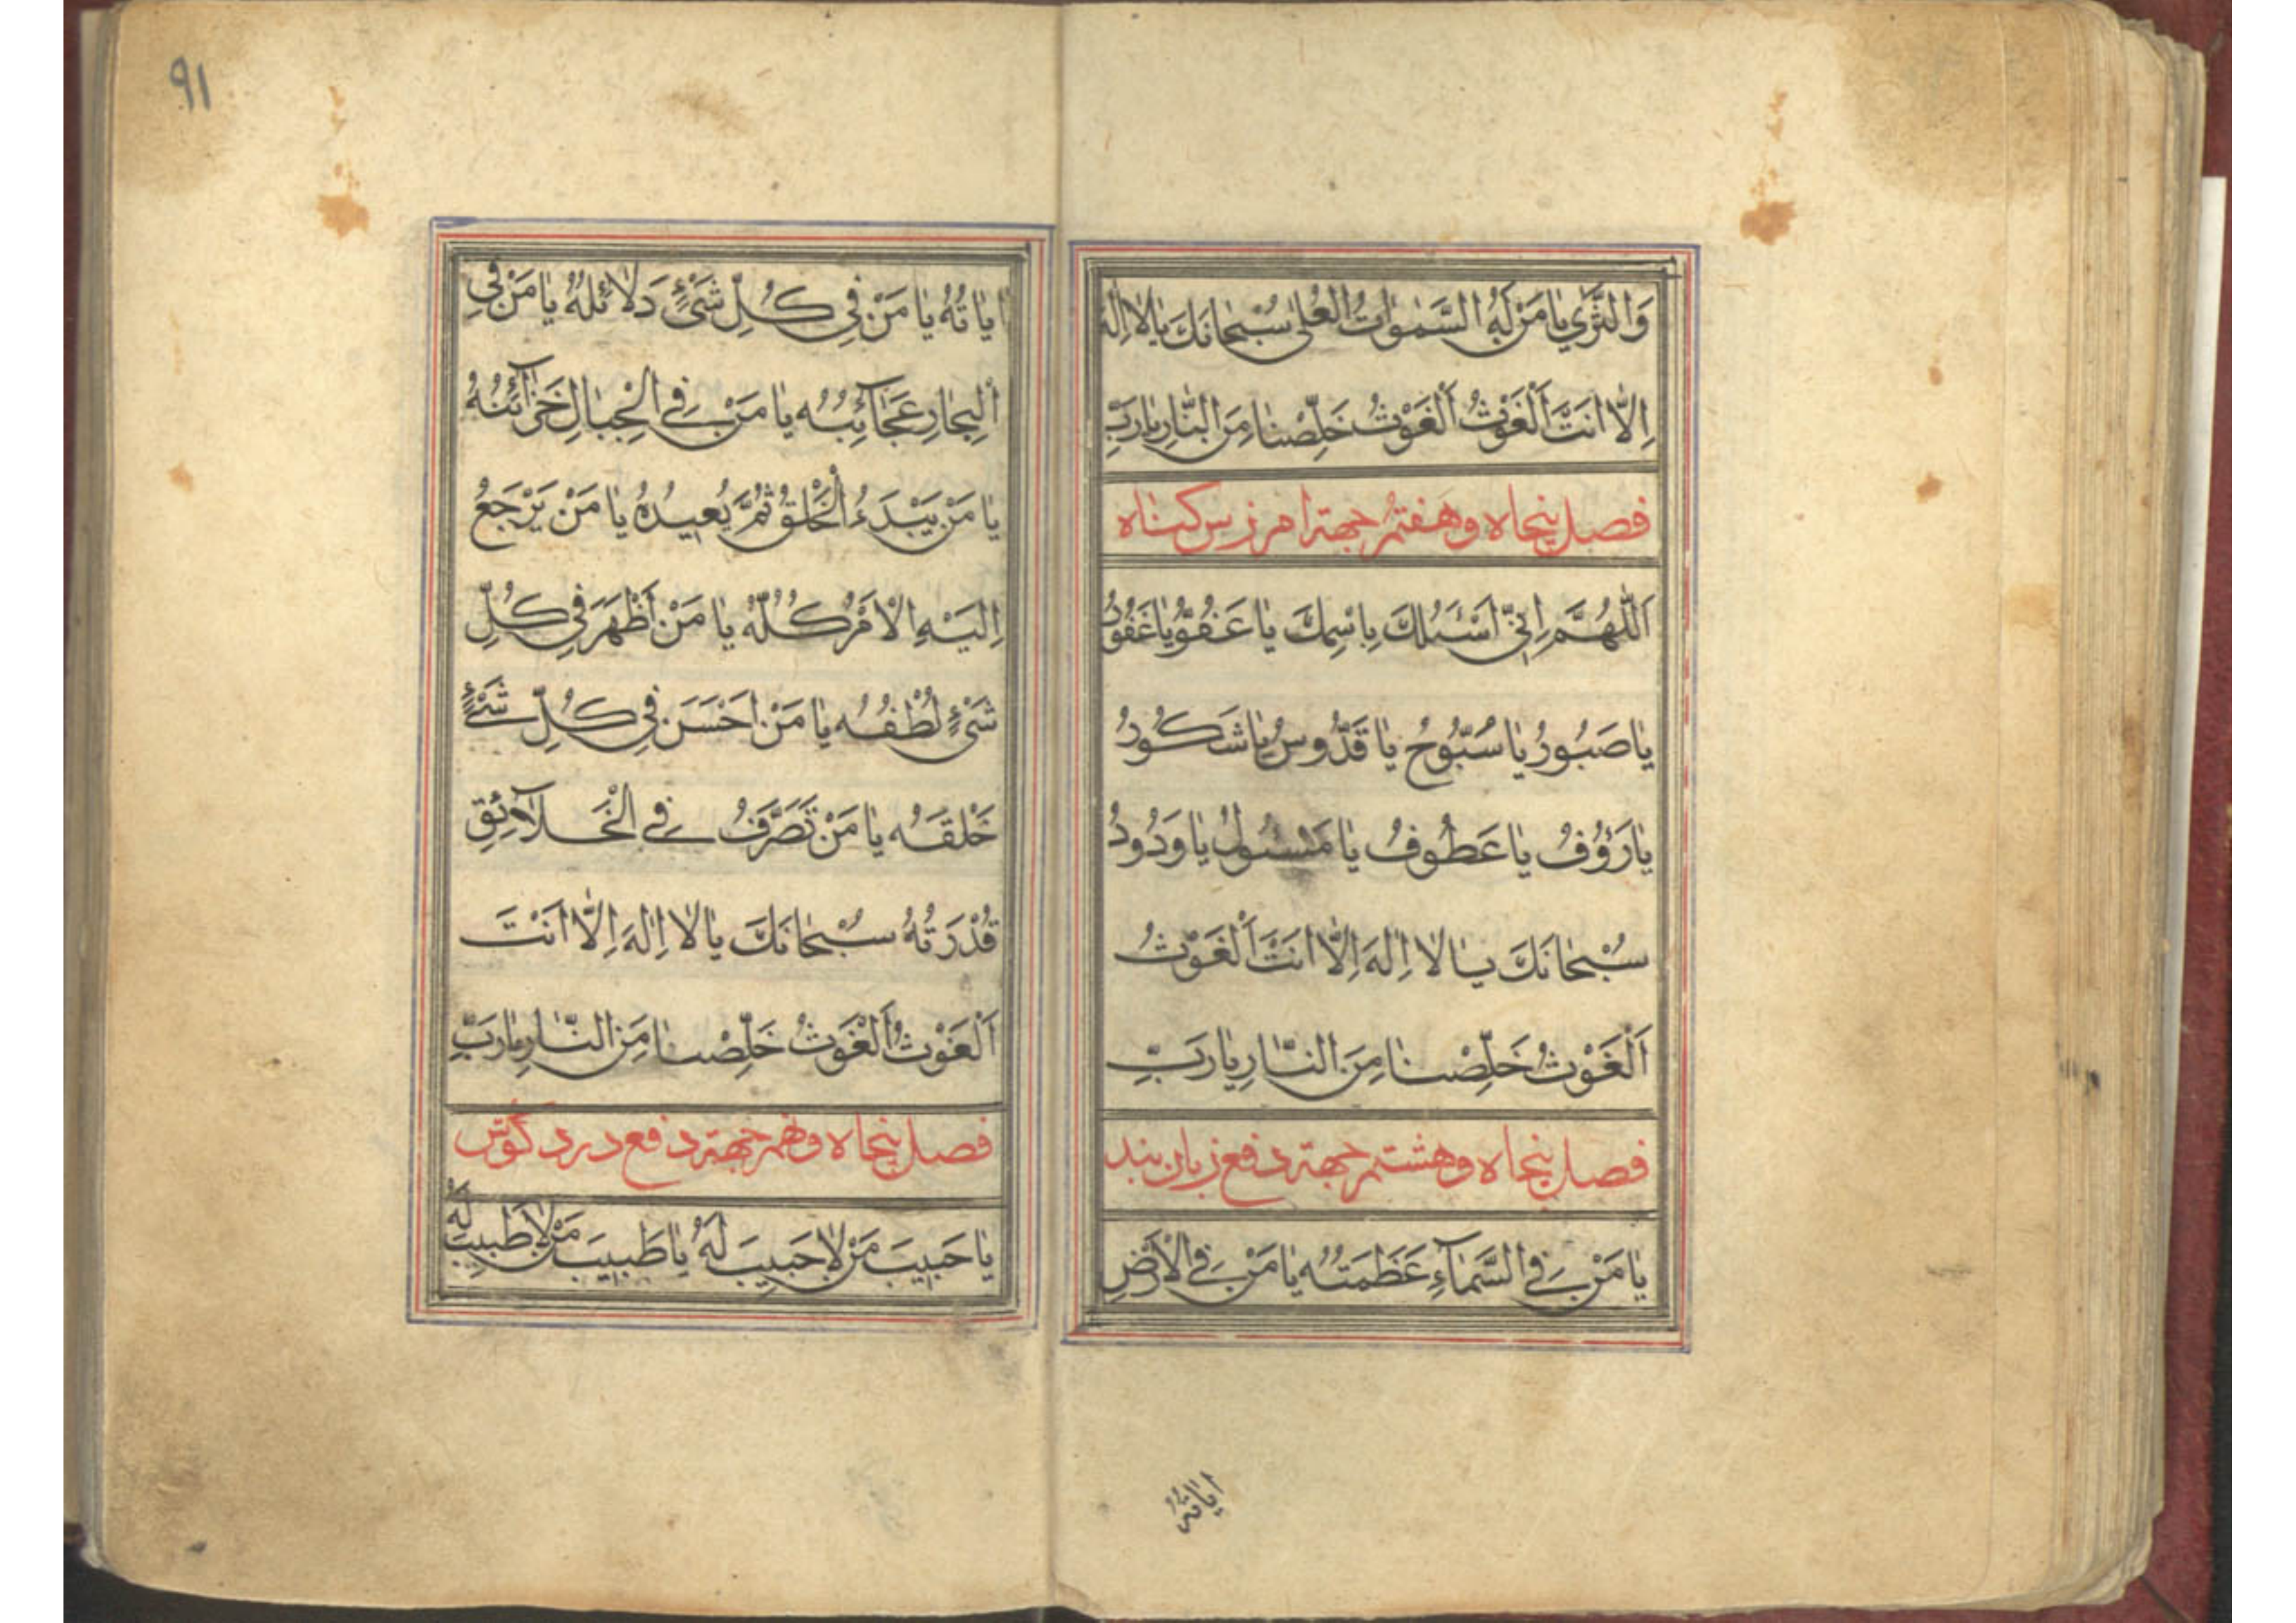 وَالثَّرٰي يٰا مَنْ لَهُ السَّمٰوٰاتُ الْعُلىٰ سُبْحٰانَكَ يٰا لٰا اِلٰهَ
اِلّٰا اَنْتَ اَلْغَوْثُ اَلْغَوْثُ خَلِّصْنٰا مِنَ النّٰارِ يٰا رَبِّ
فصل پنجاه و هفتم جهة امرزس کناه
اَللّٰهُمَّ اِنّي اَسْئَلُكَ بِاسْمِكَ يٰا عَفُوُّ يٰا غَفُورُ
يٰا صَبُورُ يٰا سُبُّوحُ يٰا قَدُّوسُ يٰا شَكُورُ
يٰا رَؤُفُ يٰا عَطُوفُ يٰا مَسْئُولُ يٰا وَدُودُ
سُبْحٰانَكَ يٰا لٰا اِلٰهَ اِلّٰا اَنْتَ اَلْغَوْثُ
اَلْغَوْثُ خَلِّصْنٰا مِنَ النّٰارِ يٰا رَبِّ
فصل پنجاه و هشتم جهة دفع زبان بند
يٰا مَنْ فِي السَّمٰآءِ عَظَمَتُهُ يٰا مَنْ فِي الْاَرْضِ
اٰيٰاتُهُ
٩١
اٰيٰاتُهُ يٰا مَنْ فِي كُلِّ شَيْءٍ دَلٰائِلُهُ يٰا مَنْ فِي
الْبِحٰارِ عَجٰآئِبُهُ يٰا مَنْ فِي الْجِبٰالِ خَزٰآئِنُهُ
يٰا مَنْ يَبْدَءُ الْخَلْقَ ثُمَّ يُعيدُهُ يٰا مَنْ يَرْجَعُ
اِلَيْهِ الْاَمْرُ كُلُّهُ يٰا مَنْ اَظْهَرَ في كُلِّ
شَيْءٍ لُطْفُهُ يٰا مَنْ اَحْسَنَ في كُلِّ شَيْءٍ
خَلْقَهُ يٰا مَنْ تَصَرَّفُ فِي الْخَلٰآئِقِ
قُدْرَتُهُ سُبْحٰانَكَ يٰا لٰا اِلٰهَ اِلّٰا اَنْتَ
اَلْغَوْثُ اَلْغَوْثُ خَلِّصْنٰا مِنَ النّٰارِ يٰا رَبِّ
فصل پنجاه و نهم جهة دفع درد گوش
يٰا حَبيبَ مَنْ لٰا حَبيبَ لَهُ يٰا طَبيبَ مَنْ لٰا طَبيبَ لَهُ